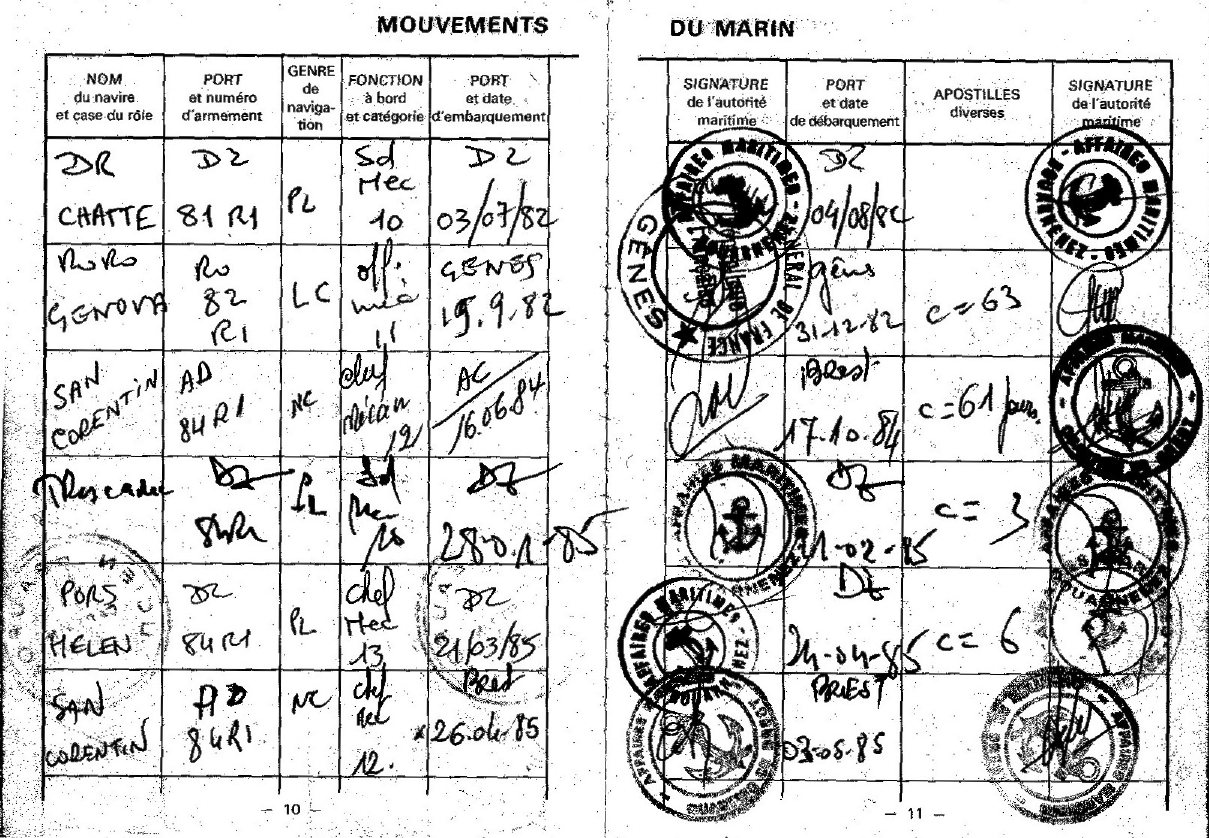 MOUVEMENTS
NOM
du navire
et case du rôle
PORT
et numéro
d'armement
GENRE
de
naviga-
tion
FONCTION
à bord
et catégorie
PORT
et date
d'embarquement
DR
CHATTE
DZ
81 R1
PL
Sd
Mec
10
DZ
03/07/82
RoRo
GENOVA
Ro
82
R1
LC
off.
méc
11
GENES
15.9.82
SAN
CORENTIN
AD
84 R1
NC
chef
Mécan
12
AC
16.06.84
DZ
84R1
PL
Sd
Mec
10
DZ
28-01-85
PORS
HELEN
DZ
84 R1
PL
chef
Mec
13
DZ
21/03/85
SAN
CORENTIN
AD
84R1
NC
chef
Mec
12.
Brest
26.04.85
— 10 —
DU MARIN
SIGNATURE
de l'autorité
maritime
PORT
et date
de débarquement
APOSTILLES
diverses
SIGNATURE
de l'autorité
maritime
AFFAIRES MARITIMES
DZ
04/08/82
AFFAIRES MARITIMES
GÊNES
GENERAL DE FRANCE
Gênes
31-12-82
c=63
Brest
17.10.84
c=61 jours.
AFFAIRES MARITIMES
DZ
21-02-85
c= 3
AFFAIRES MARITIMES
DZ
24-04-85
c= 6
BREST
03-05-85
— 11 —